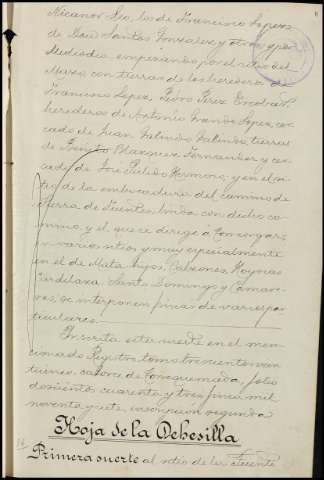 Nicanor Leo, los de Francisco Lopez
de San Santos Gonzalez y otros y por
Mediodia empezando por el sitio del
con tierras de los herederos de
Francisco Lopez, Pedro Perez
herederos de Antonio Lopez, cer
cado de Juan Galindo Galindo, tierras
de Benito Blazquez Fernandez y cer
cado de José Pulido Hermoso, y en el si
tio de la embocadura del camino de
Sierra de Fuentes linda con dicho ca
mino, y el que se dirige a
en varios sitios y muy especialmente
en el de Mata hijos,
Santo Domingo y
se interponen fincas de varios par
ticulares
Inscrita esta suerte en el men
cionado Registro tomo trescientos
catorce de Torrequemada, folio
doscientos cuarenta y tres finca mil
noventa y siete, inscripcion segunda
Hoja de la Dehesilla
Primera suerte al sitio de las